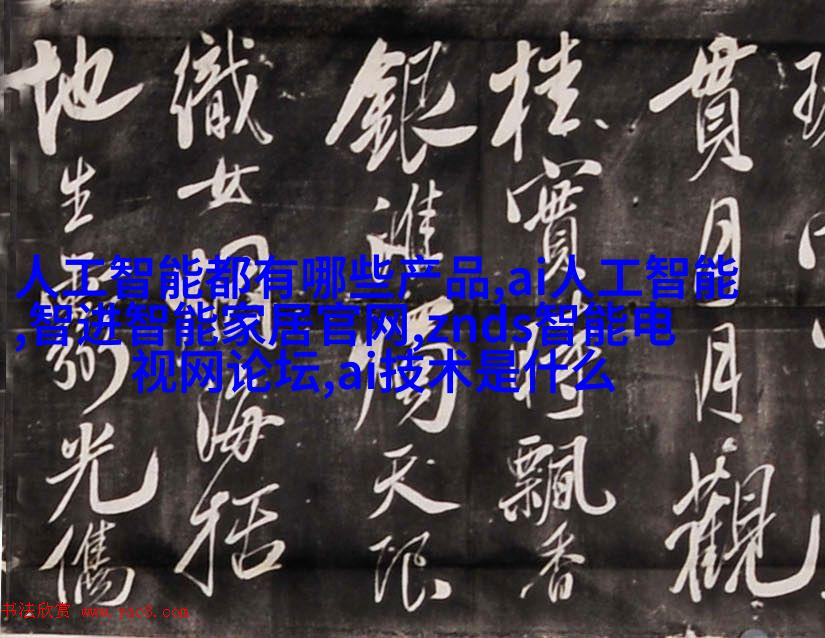 人工智能都有哪些产品,ai人工智能
,智进智能家居官网,znds智能电
视网论坛,ai技术是什么
貫月月觀
桂實飄香
銀天
織女海
地生光
书法欣赏 www.yac8.com